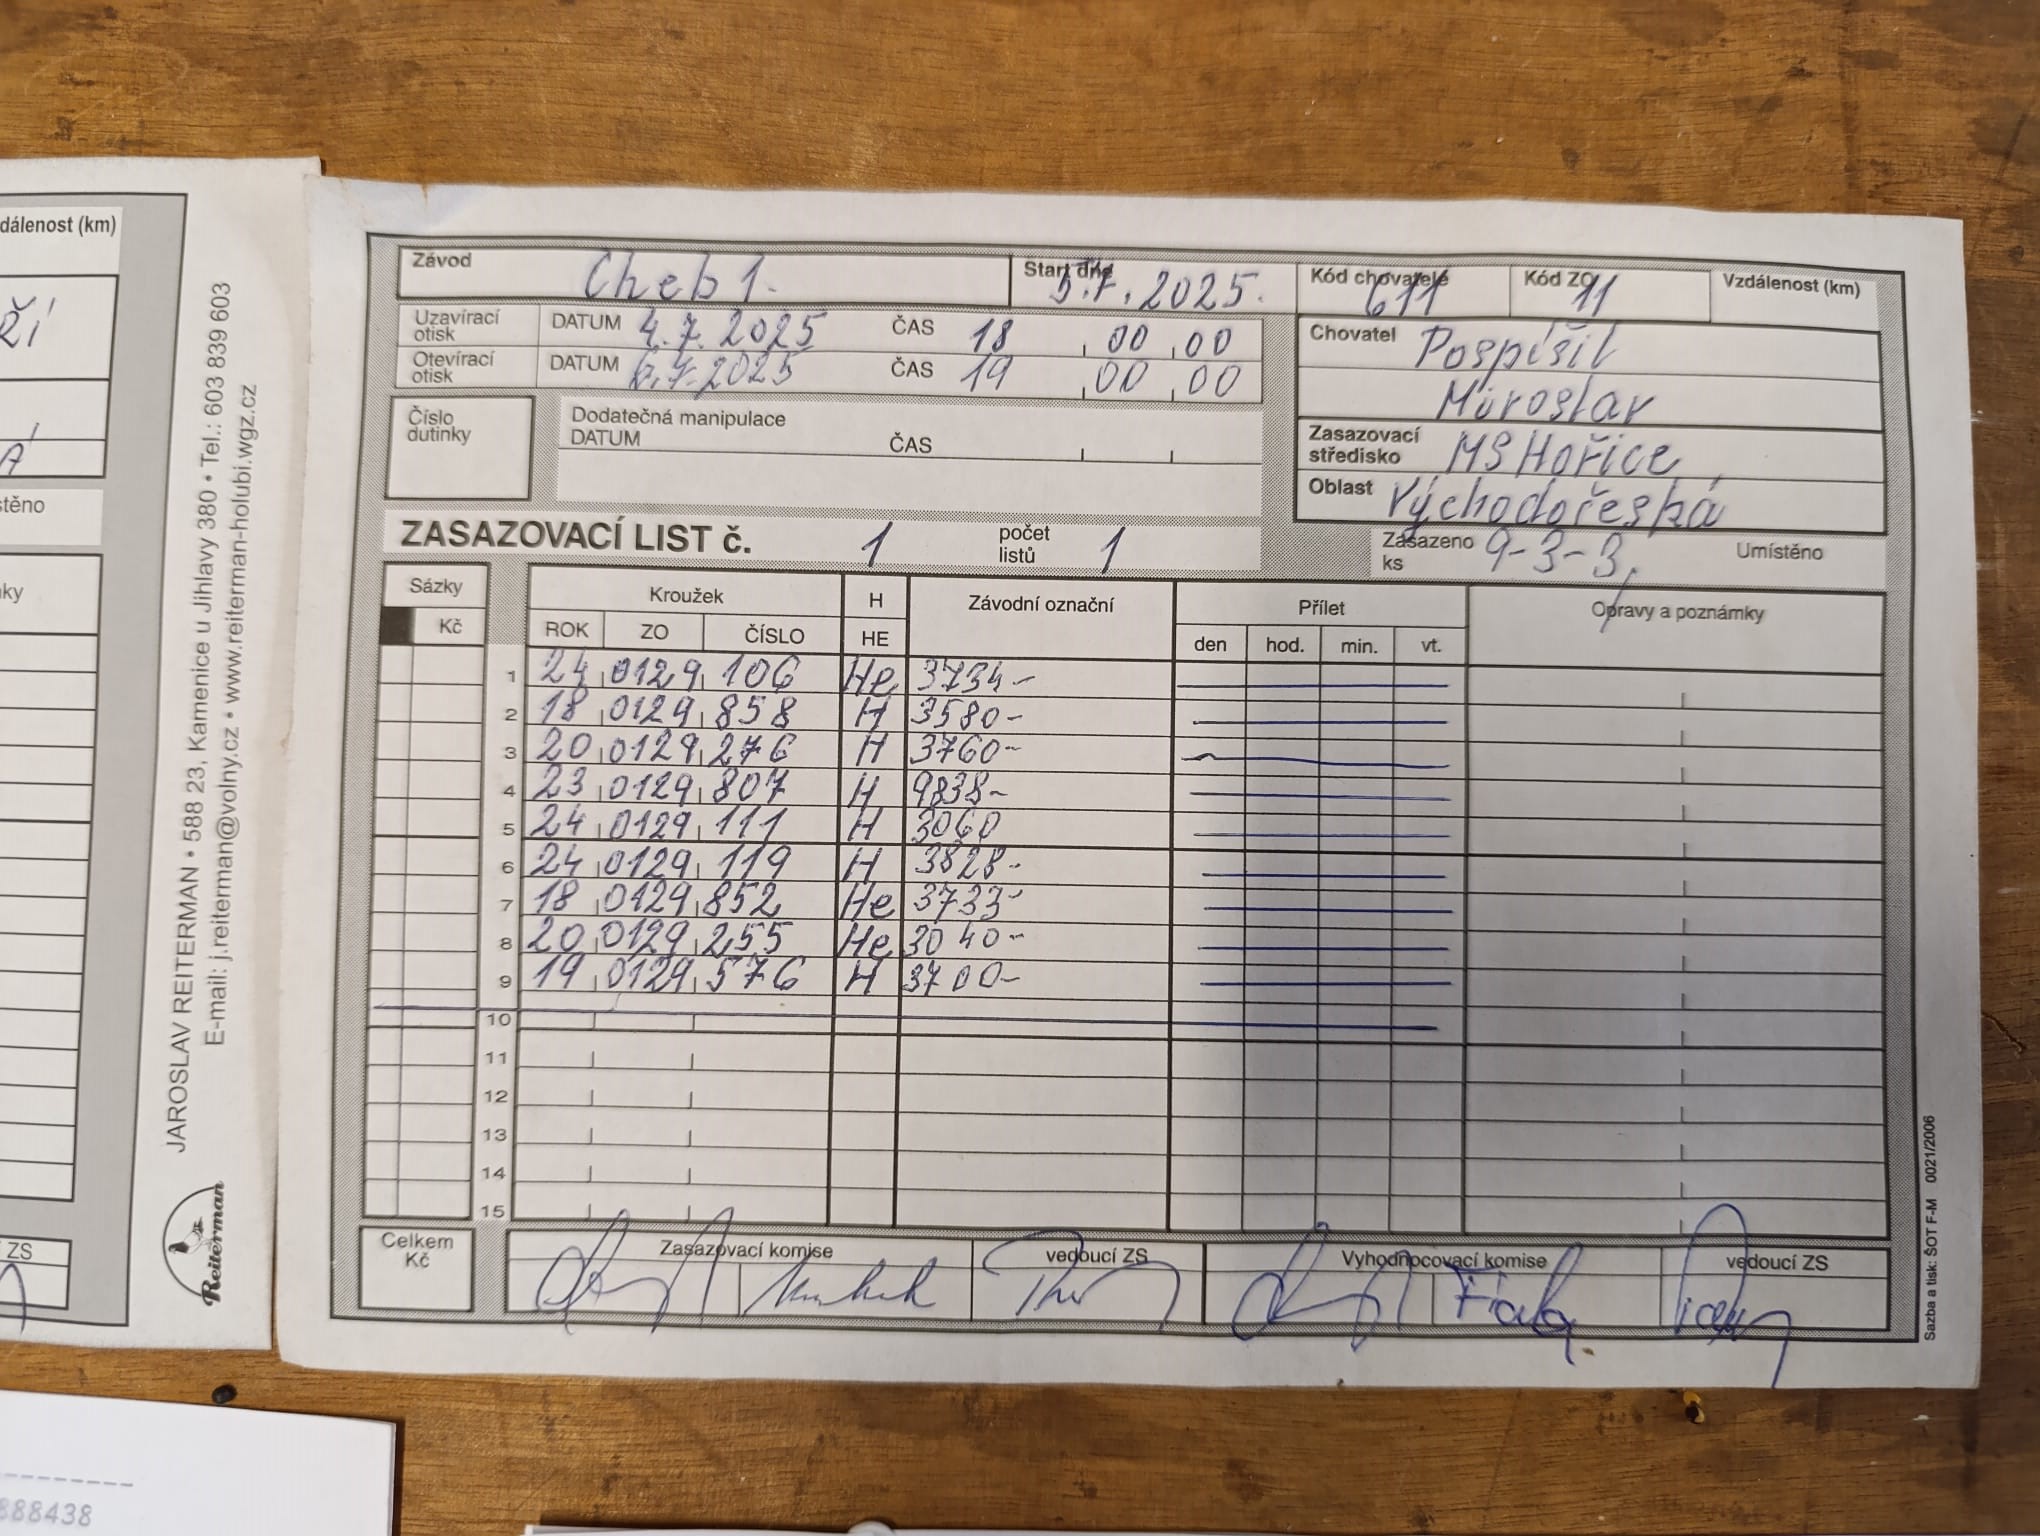 dálenost (km)
ŘÍ
Á
stěno
ky
ZS
888438
JAROSLAV REITERMAN • 588 23, Kamenice u Jihlavy 380 • Tel.: 603 839 603
E-mail: j.reiterman@volny.cz • www.reiterman-holubi.wgz.cz
Reiterman
Závod Cheb 1. Start dne 5.7.2025. Kód chovatele 611 Kód ZO 11 Vzdálenost (km)
Uzavírací otisk DATUM 4.7.2025 ČAS 18 00 00
Otevírací otisk DATUM 6.7.2025 ČAS 19 00 00
Chovatel Pospíšil
Miroslav
Číslo dutinky
Dodatečná manipulace
DATUM ČAS
Zasazovací středisko MS Hořice
Oblast Východočeská
ZASAZOVACÍ LIST č. 1 počet listů 1
Zasazeno ks 9-3-3, Umístěno
Sázky Kroužek H Závodní označní Přílet Opravy a poznámky
Kč ROK ZO ČÍSLO HE den hod. min. vt.
1 24 0129 106 He 3734-
2 18 0129 858 H 3580-
3 20 0129 276 H 3760-
4 23 0129 807 H 9838-
5 24 0129 111 H 3060
6 24 0129 119 H 3828-
7 18 0129 852 He 3733-
8 20 0129 255 He 3040-
9 19 0129 576 H 3700-
10
11
12
13
14
15
Celkem Kč Zasazovací komise vedoucí ZS Vyhodnocovací komise vedoucí ZS
Fiala
Sazba a tisk: ŠOT F-M 0021/2006